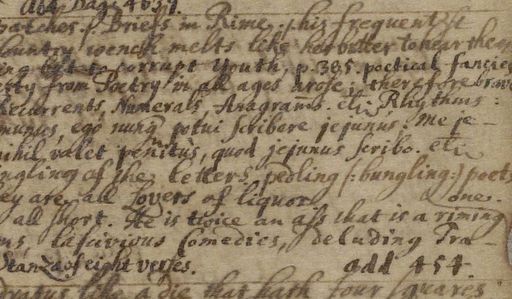 add page 463.
patches. Briefs in Rime. his frequent'st
Country wench melts like hot butter to hear the
ing to corrupt youth, p. 385. poetical fancies
from Poetry in all ages arose therefore brave
Recurrents, Numerals Anagrams. etc Rhythms:
ego nunq potui scribere jejunus, me je-
nihil valet penitus, quod jejunus scribo. etc
ngling of the letters, pedling (: bungling:) poets
hey are all lovers of liquor one.
all short. He is twice an ass that is a riming
lascivious Comedies, deluding Tra-
Stanza of eight verses. add 454.
like a die that hath four squares